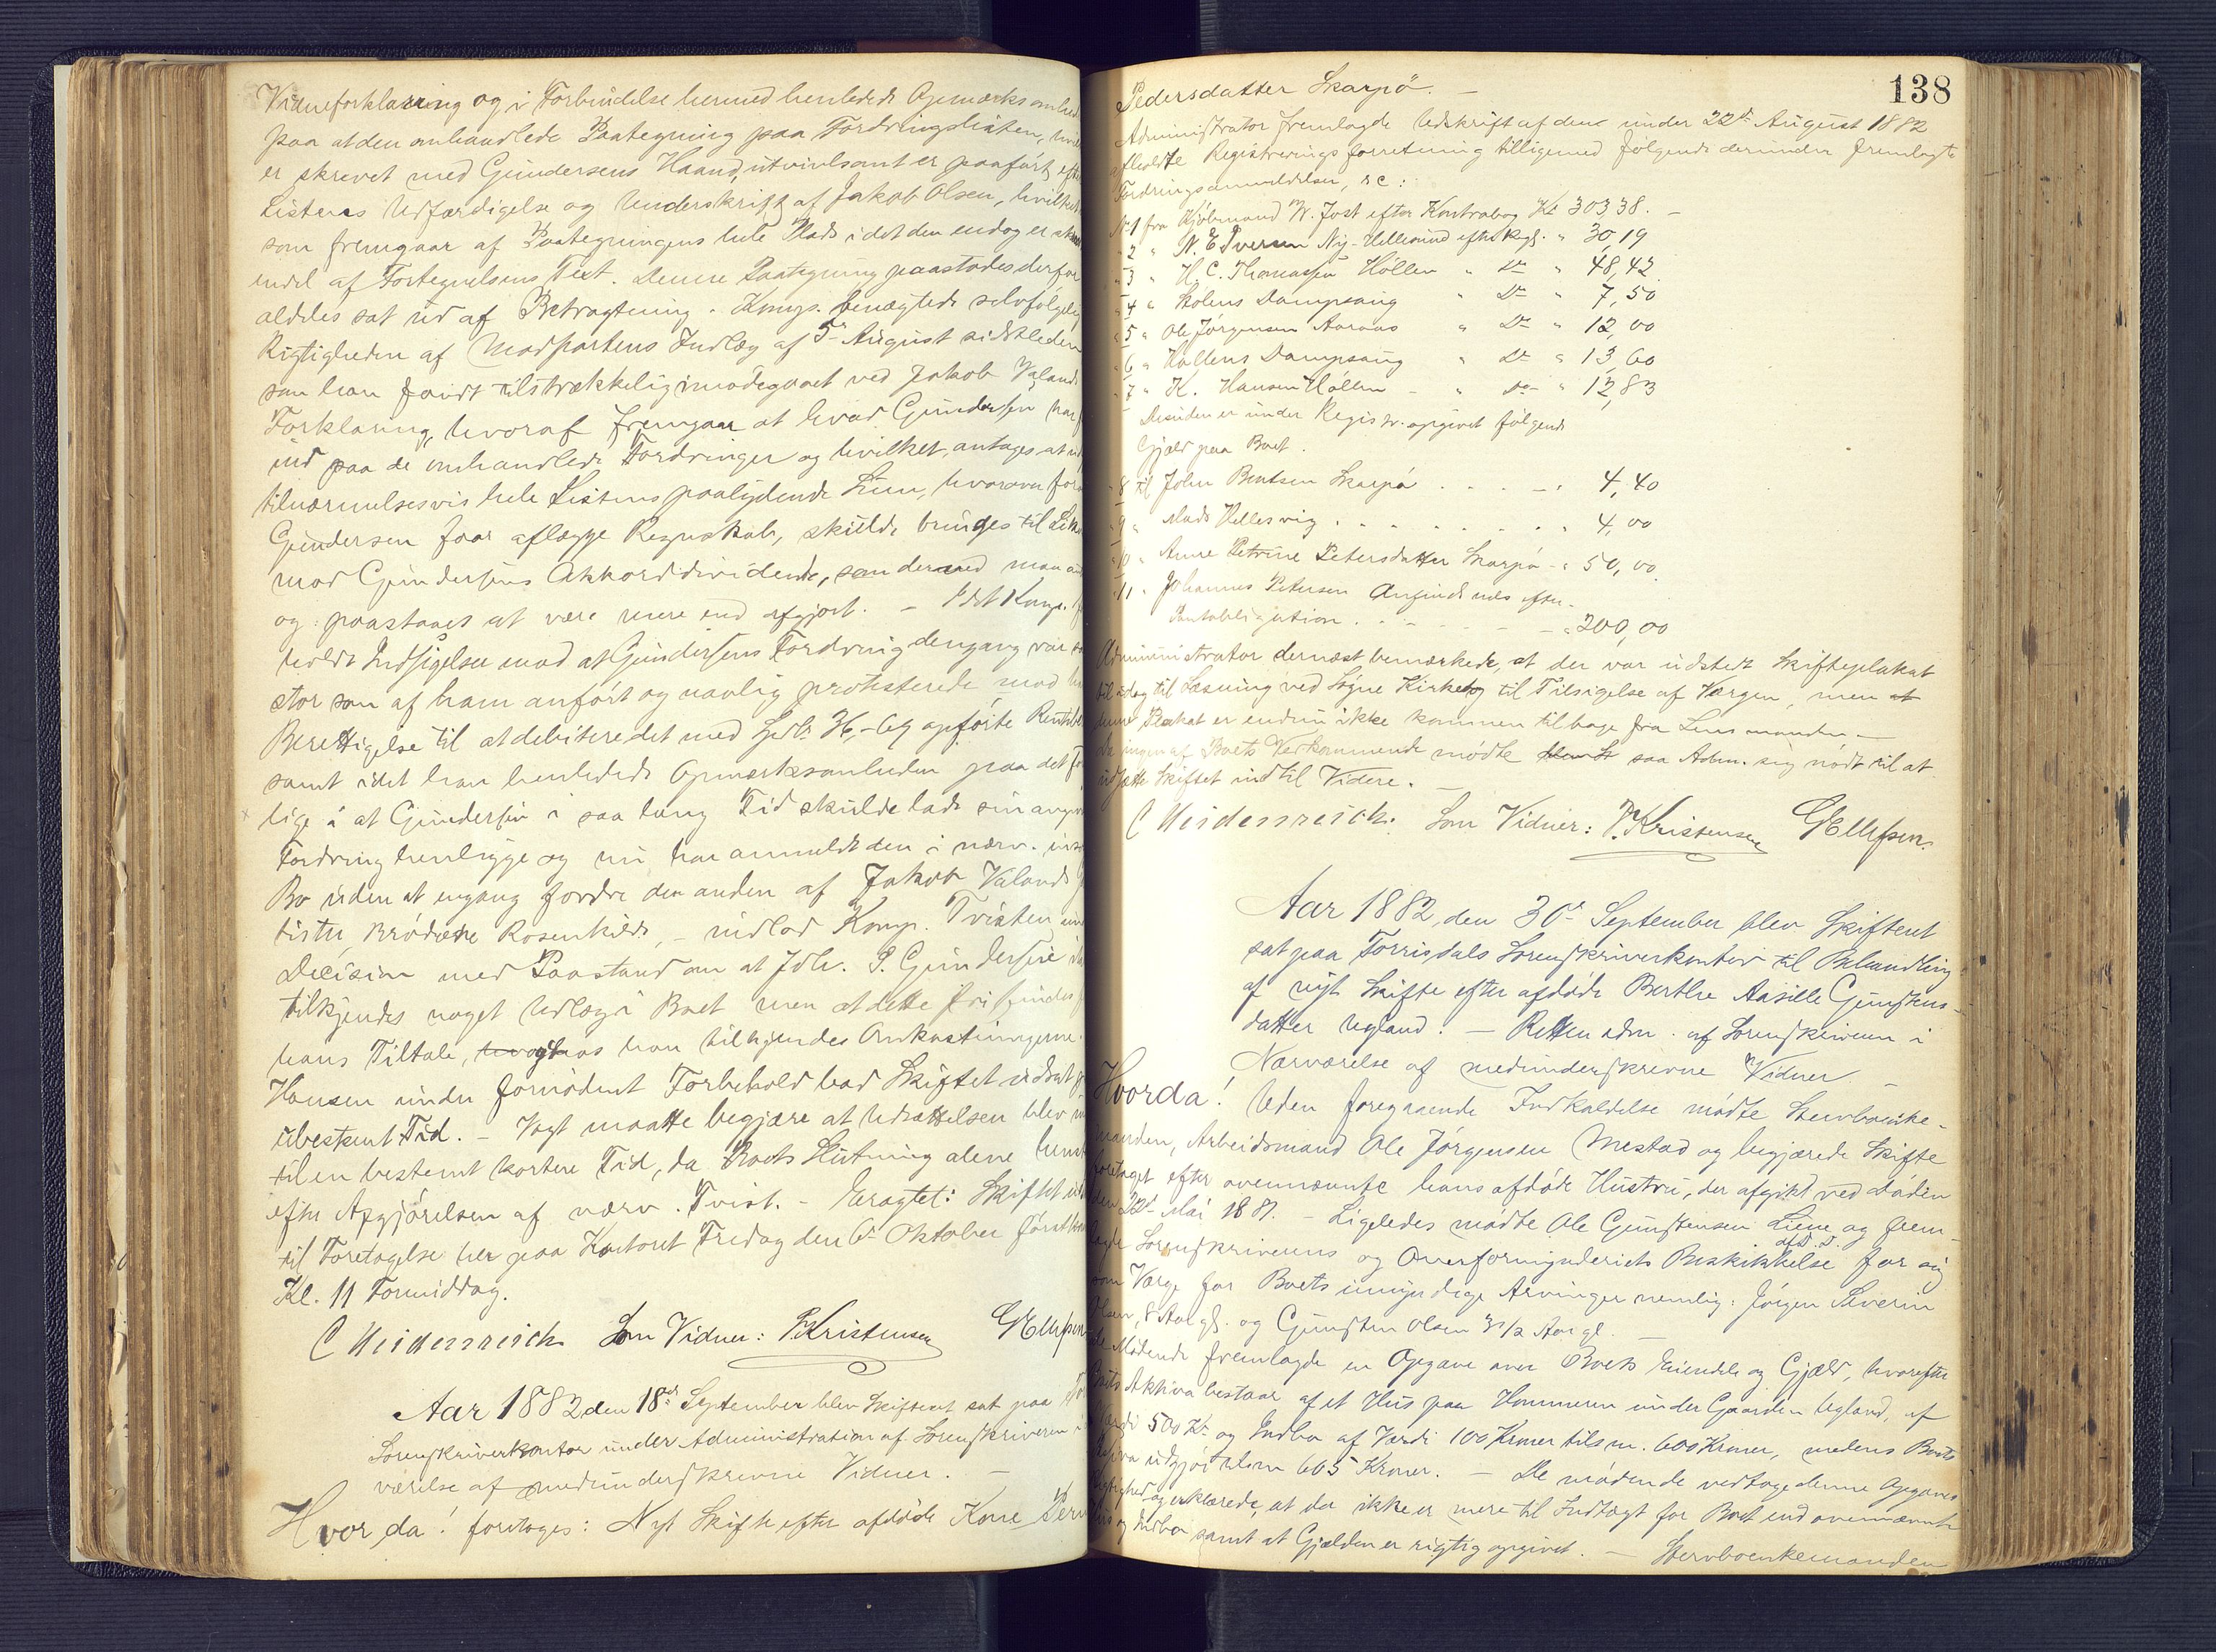 Vidneforklaring og i Forbindelse hermed henledede Opmærksomhed
paa at den omhandlede Paategning paa Fordringslisten,
er skrevet med Gundersens Haand, utvivlsomt er paaført efter
Listens Udfærdigelse og Underskrift af Jakob Olsen, hvilket
som fremgaar af Paategningens hele Plads idet den endog er
endel af Fortegnelsens Text. Denne Paategning paastodes derfor
aldeles sat ud af Betragtning. Komp. benægtede selvfølgelig
Rigtigheden af Modpartens Indlæg af 5te August sidstleden
som han fandt tilstrækkelig imødegaaet ved Jakob Valands
Forklaring, hvoraf fremgaar at hvad Gundersen har
ind paa de omhandlede Fordringer og hvilket, antages at
tilnærmelsesvis hele Listens paalydende Sum, hvorover
Gundersen faar aflægge Regnskab, skulde bringes til
mod Gundersens Akkorddividende, som dermed maa
og paastaaes at være mere end afgjort. – Idet Komp.
holdt Indsigelse mod at Gundersens Fordring dengang var saa
stor som af ham anført og navnlig protesterede mod
Berettigelse til at debitere det med Spd. 36,-64 opførte
samt idet han henledede Opmærksomheden paa det
lige i at Gundersen i saa lang Tid skulde lade sin
Fordring henligge og nu har anmeldt den i nærv.
Bo uden at engang fordre den anden af Jakob Valands
Brødrene Rosenkilde, – indlod Komp. Tvisten under
Decision med Paastand om at Joh. P. Gundersen
tilkjendes noget Udlæg i Boet men at dette frifindes
hans Tiltale, han tilkjendes Omkostningerne.
Hansen under fornødent Forbehold bad Skiftet udsat
ubestemt Tid. – Vogt maatte begjære at Udsættelsen blev
til en bestemt kortere Tid, da Boets Slutning alene
efter Afgjørelsen af nærv. Tvist. – Eragtet: Skiftet
til Foretagelse her paa Kontoret Fredag den 6te Oktober
Kl. 11 Formiddag.
C Heidenreich Som Vidner: P. Kristensen
Aar 1882 den 18de September blev Skifteret sat paa
Sorenskriverkontor under Administration af Sorenskriveren i
værelse af medunderskrevne Vidner. –
Hvor da! foretoges: Nyt Skifte efter afdøde Kone
138
Pedersdatter Skarpö. –
Administrator fremlagde Udskrift af den under 22de August 1882
afholdte Registreringsforretning tilligemed følgende derunder fremlagte
Fordringsanmeldelser, &c:
No 1 fra Kjøbmand W. Jost efter Kontrabog Kr 303,38. –
" 2 " N. E. Iversen Ny-Hellesund efter Regg. " 30,19
" 3 " H. C. Thomassen Höllen " Do " 48,42
" 4 " Dampsaug " Do " 7,50
" 5 " Ole Jørgensen Aaraas " Do " 12,00
" 6 " Höllens Dampsaug " Do " 13,60
" 7 " K. Hansen Höllen " Do " 12,83
Desuden er under Registr. opgivet følgende
Gjæld paa Boet.
" 8 til John Bentsen Skarpö . . . . 4,40
" 9 " Mads Hellesvig . . . . . . " 4,00
" 10 " Anne Petrine Petersdatter Skarpö - " 50,00
" 11 " Johannes Petersen efter
Pantobligation . . . . . - " 200,00
Administrator dernæst bemærkede, at der var udstedt Skifteplakat
til idag til Læsning ved Søgne Kirke og til Tilsigelse af Værgen, men at
denne Plakat er endnu ikke kommen tilbage fra Lensmanden –
Da ingen af Boets Vedkommende mødte saa Adm. sig nødt til at
udsætte Skiftet indtil Videre. –
C Heidenreich. Som Vidner: P. Kristensen
Aar 1882, den 30te September blev Skifteret
sat paa Torrisdals Sorenskriverkontor til Behandling
af nyt Skifte efter afdøde Berthe Aasille Gunstens-
datter Ugland. – Retten adm. af Sorenskriveren i
Nærværelse af medunderskrevne Vidner. –
Hvorda! Uden foregaaende Indkaldelse mødte Stervboenke-
manden, Arbeidsmand Ole Jørgensen Mestad og begjærede Skifte
foretaget efter ovennævnte hans afdøde Hustru, der afgik ved Døden
den 22de Mai 1881. – Ligeledes mødte Ole Gunstensen Liene og frem-
lagde Sorenskriverens og Overformynderiets Beskikkelse af D. D. for sig
som Værge for Boets umyndige Arvinger nemlig: Jörgen Severin
Olsen, 8 Aar gl. og Gunsten Olsen 3 1/2 Aar gl. –
De Mødende fremlagde en Opgave over Boets Eiendele og Gjæld, hvorefter
Boets Aktiva bestaar af et Hus paa Hommeren under Gaarden Ugland, af
Værdi 500 Kr. og Indbo af Værdi 100 Kroner tils. m. 600 Kroner, medens Boets
Passiva udgjör alene 605 Kroner. – De mødende vedtoge denne Opgaves
Rigtighed og erklærede, at der ikke er mere til Indtægt for Boet end ovennævnte
Hus og Indbo samt at Gjælden er rigtig opgivet. – Stervboenkemanden